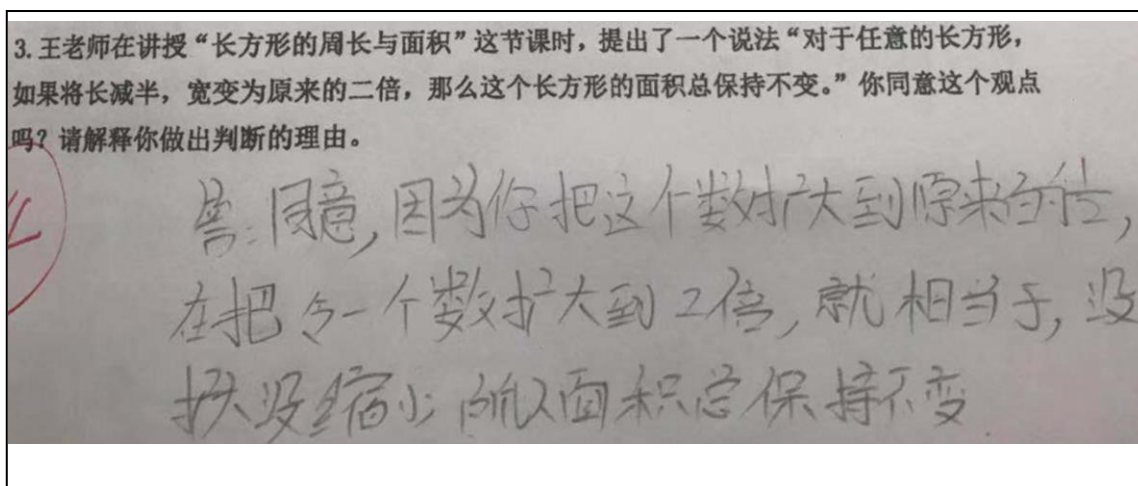 3.王老师在讲授“长方形的周长与面积”这节课时，提出了一个说法“对于任意的长方形，
如果将长减半，宽变为原来的二倍，那么这个长方形的面积总保持不变。”你同意这个观点
吗？请解释你做出判断的理由。
答:同意,因为你把这个数扩大到原来的½,
在把令一个数扩大到2倍,就相当于,没
扩大没缩小所以面积总保持不变.